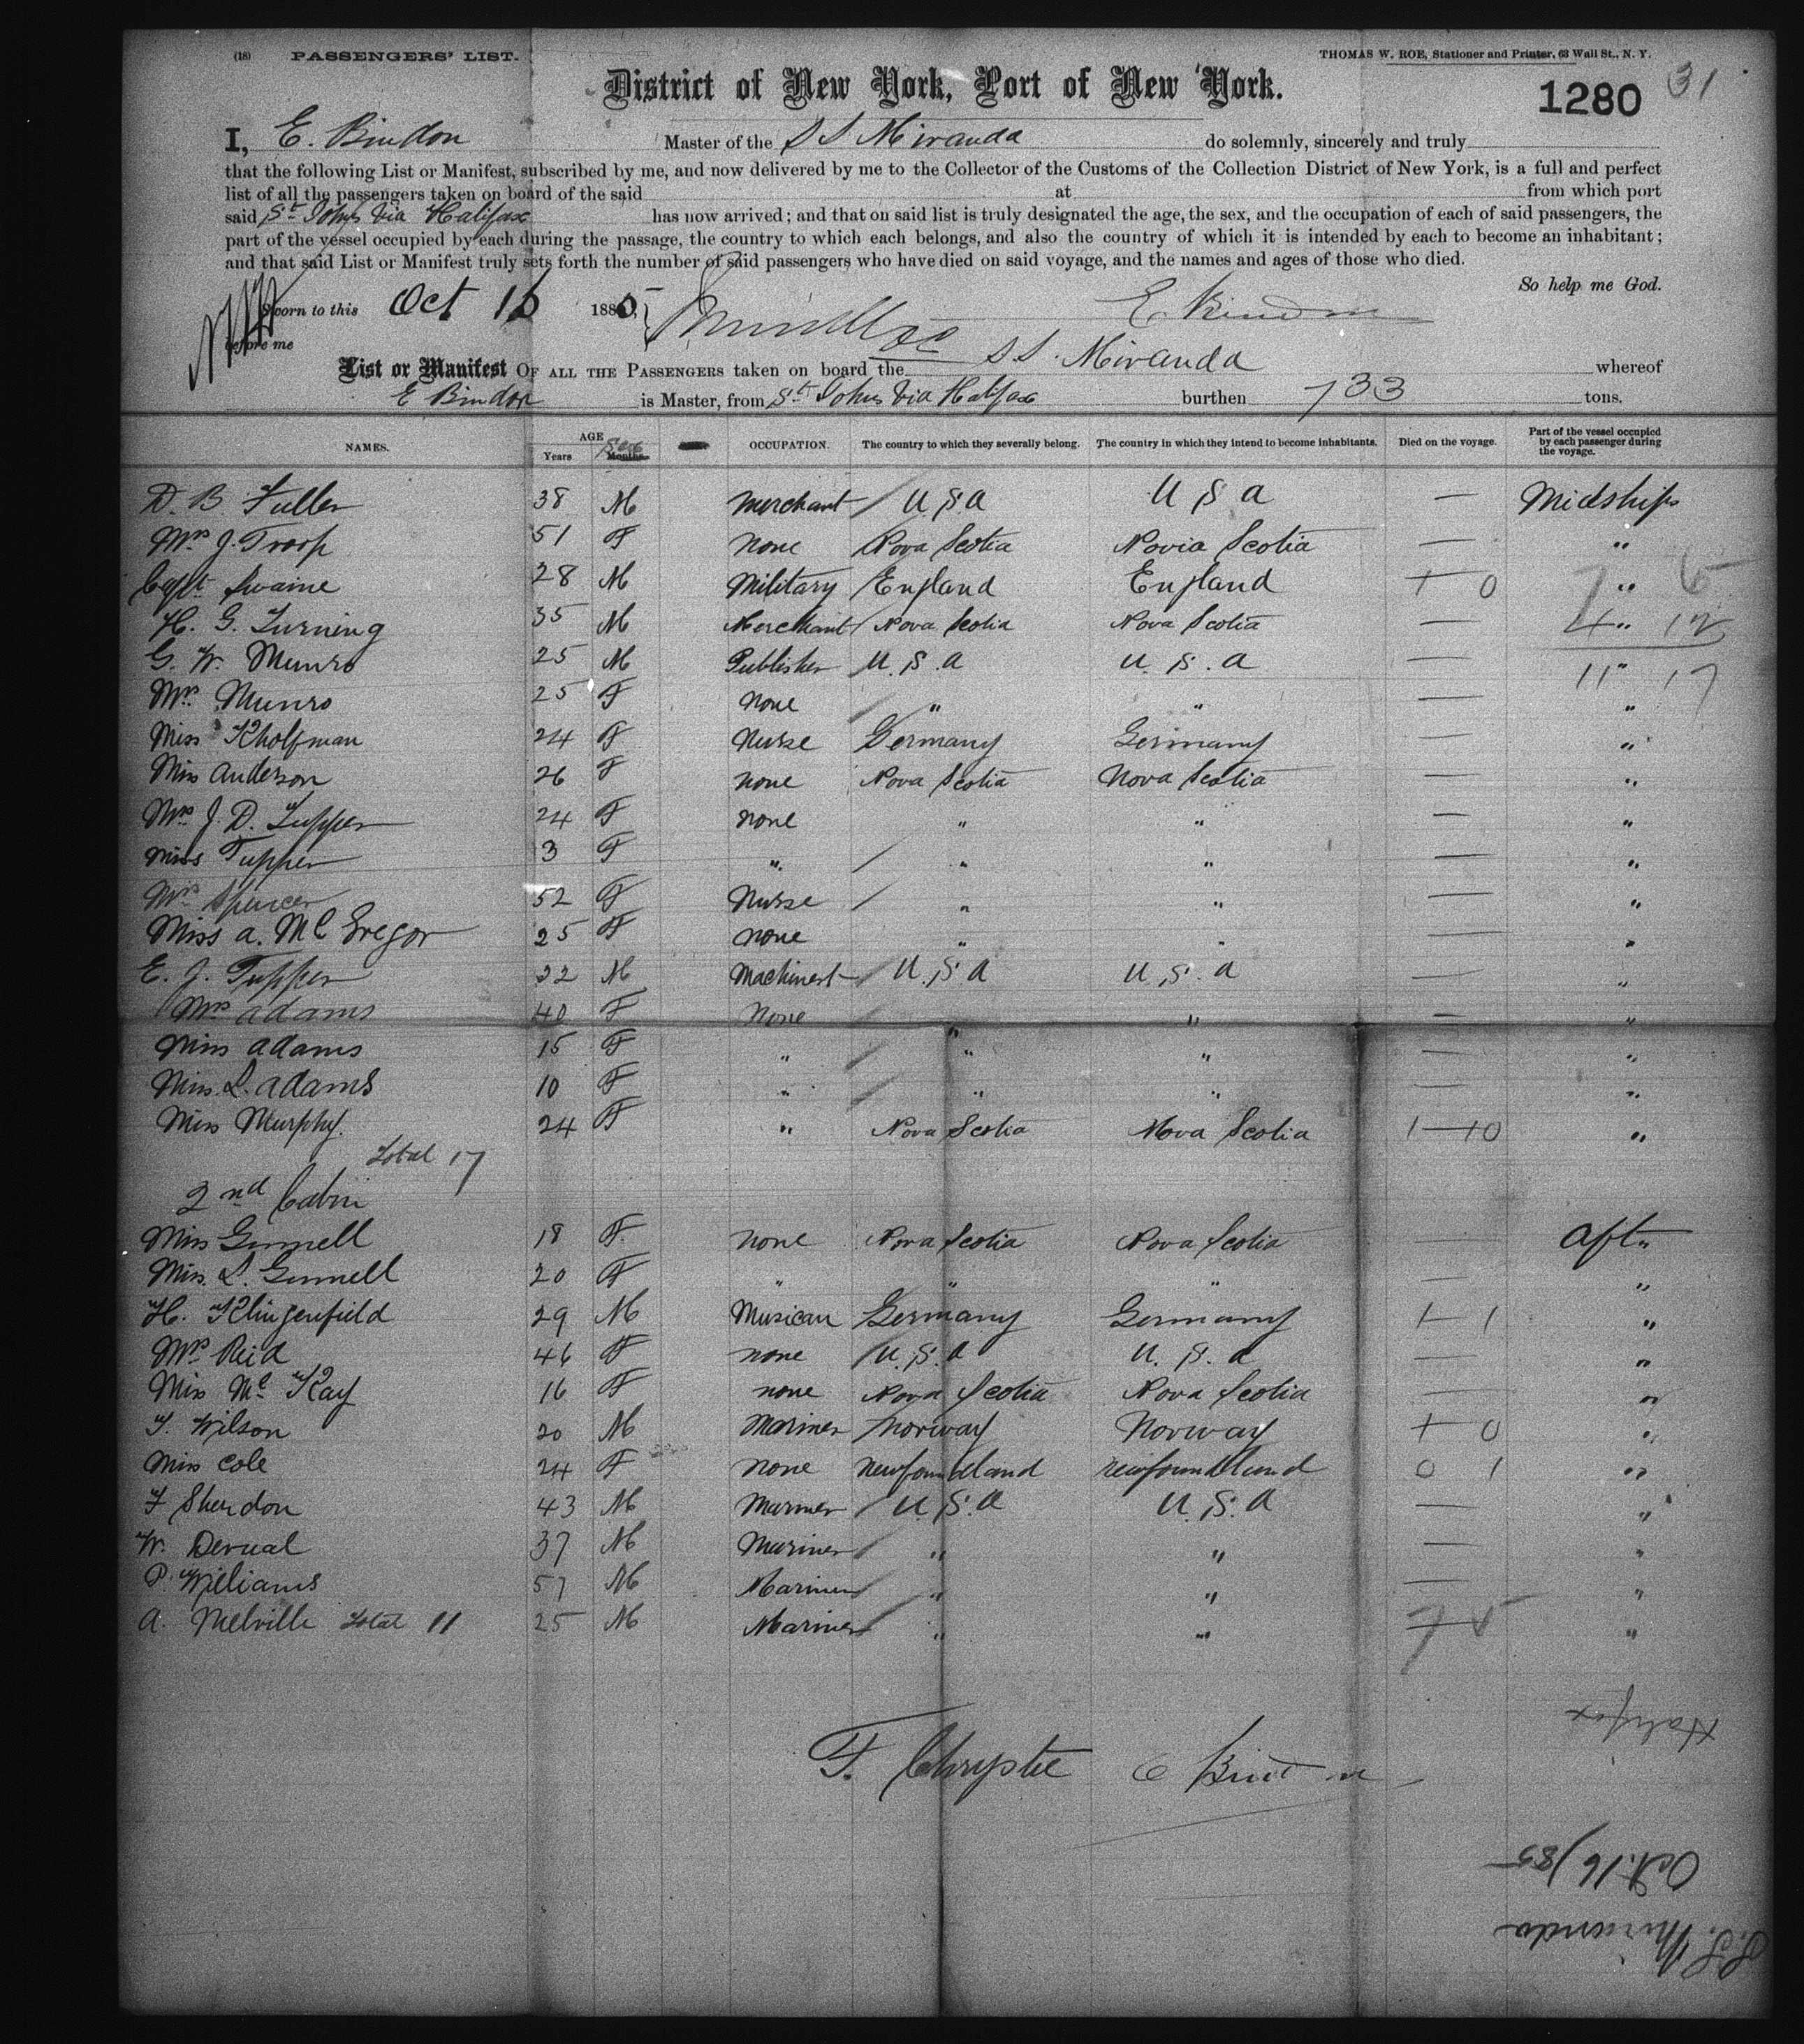 (18) PASSENGERS' LIST. THOMAS W. ROE, Stationer and Printer, 63 Wall St., N. Y.
District of New York, Port of New York. 1280 31
I, E. Bindon Master of the S S Miranda do solemnly, sincerely and truly
that the following List or Manifest, subscribed by me, and now delivered by me to the Collector of the Customs of the Collection District of New York, is a full and perfect
list of all the passengers taken on board of the said at from which port
said St Johns Via Halifax has now arrived; and that on said list is truly designated the age, the sex, and the occupation of each of said passengers, the
part of the vessel occupied by each during the passage, the country to which each belongs, and also the country of which it is intended by each to become an inhabitant;
and that said List or Manifest truly sets forth the number of said passengers who have died on said voyage, and the names and ages of those who died.
So help me God.
Sworn to this Oct 16 1885, E Bindon
before me
List or Manifest OF ALL THE PASSENGERS taken on board the S S. Miranda whereof
E Bindon is Master, from St Johns Via Halifax burthen 733 tons.
NAMES. AGE Years Months Sex OCCUPATION. The country to which they severally belong. The country in which they intend to become inhabitants. Died on the voyage. Part of the vessel occupied by each passenger during the voyage.
D. B. Fuller 38 M Merchant / U S A U S A — Midships
Mrs J. Troop 51 F None Nova Scotia Novia Scotia — "
Capt Swaine 28 M Military / England England + 0 "
H. G. Turning 35 M Merchant / Nova Scotia Nova Scotia — "
G. W. Munro 25 M Publisher U. S. A U. S. A — "
Mrs Munro 25 F None " " — "
Miss Kholfman 24 F Nurse Germany Germany — "
Miss Anderson 26 F None Nova Scotia Nova Scotia — "
Mrs J. D. Tupper 24 F None " " — "
Miss Tupper 3 F " / " " — "
Mrs Spencer 52 F Nurse / " " — "
Miss A. Mc Gregor 25 F None " " — "
E. J. Tupper 32 M Machinest / U. S. A U. S. A — "
Mrs Adams 40 F None / " " — "
Miss Adams 15 F " / " " — "
Miss L. Adams 10 F " / " " — "
Miss Murphy. 24 F " Nova Scotia Nova Scotia 1—10 "
Total 17
2nd Cabin
Miss Gunnell 18 F. None Nova Scotia Nova Scotia — Aft "
Miss. L. Gunnell 20 F " " " — "
H. Klingenfield 29 M Musican Germany Germany + 1 "
Mrs Reid 46 F None / U. S. A U. S. A — "
Miss Mc Kay 16 F None Nova Scotia Nova Scotia — "
T. Wilson 20 M Mariner / Norway Norway + 0 "
Miss Cole 24 F None Newfoundland Newfoundland 0 1 "
F Sherdon 43 M Mariner / U. S. A U. S. A — "
W. Derual 37 M Mariner / " " — "
P. Williams 57 M Mariner / " " — "
A. Melville Total 11 25 M Mariner / " " "
Halifax
F. Chrystie E Bindon
Oct. 16/85
S.S. Miranda